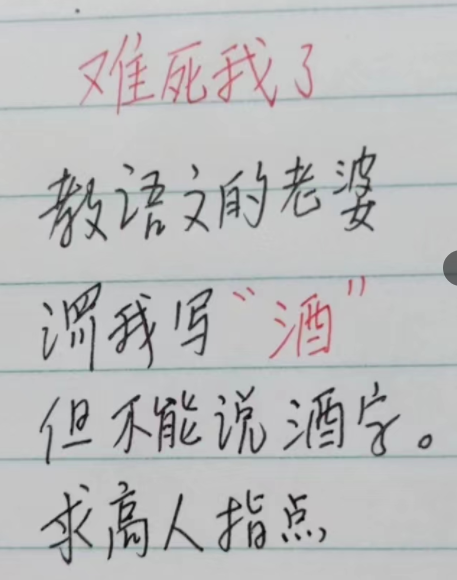 难死我了
教语文的老婆
濕我写“酒”
但不能说酒字。
求高人指点